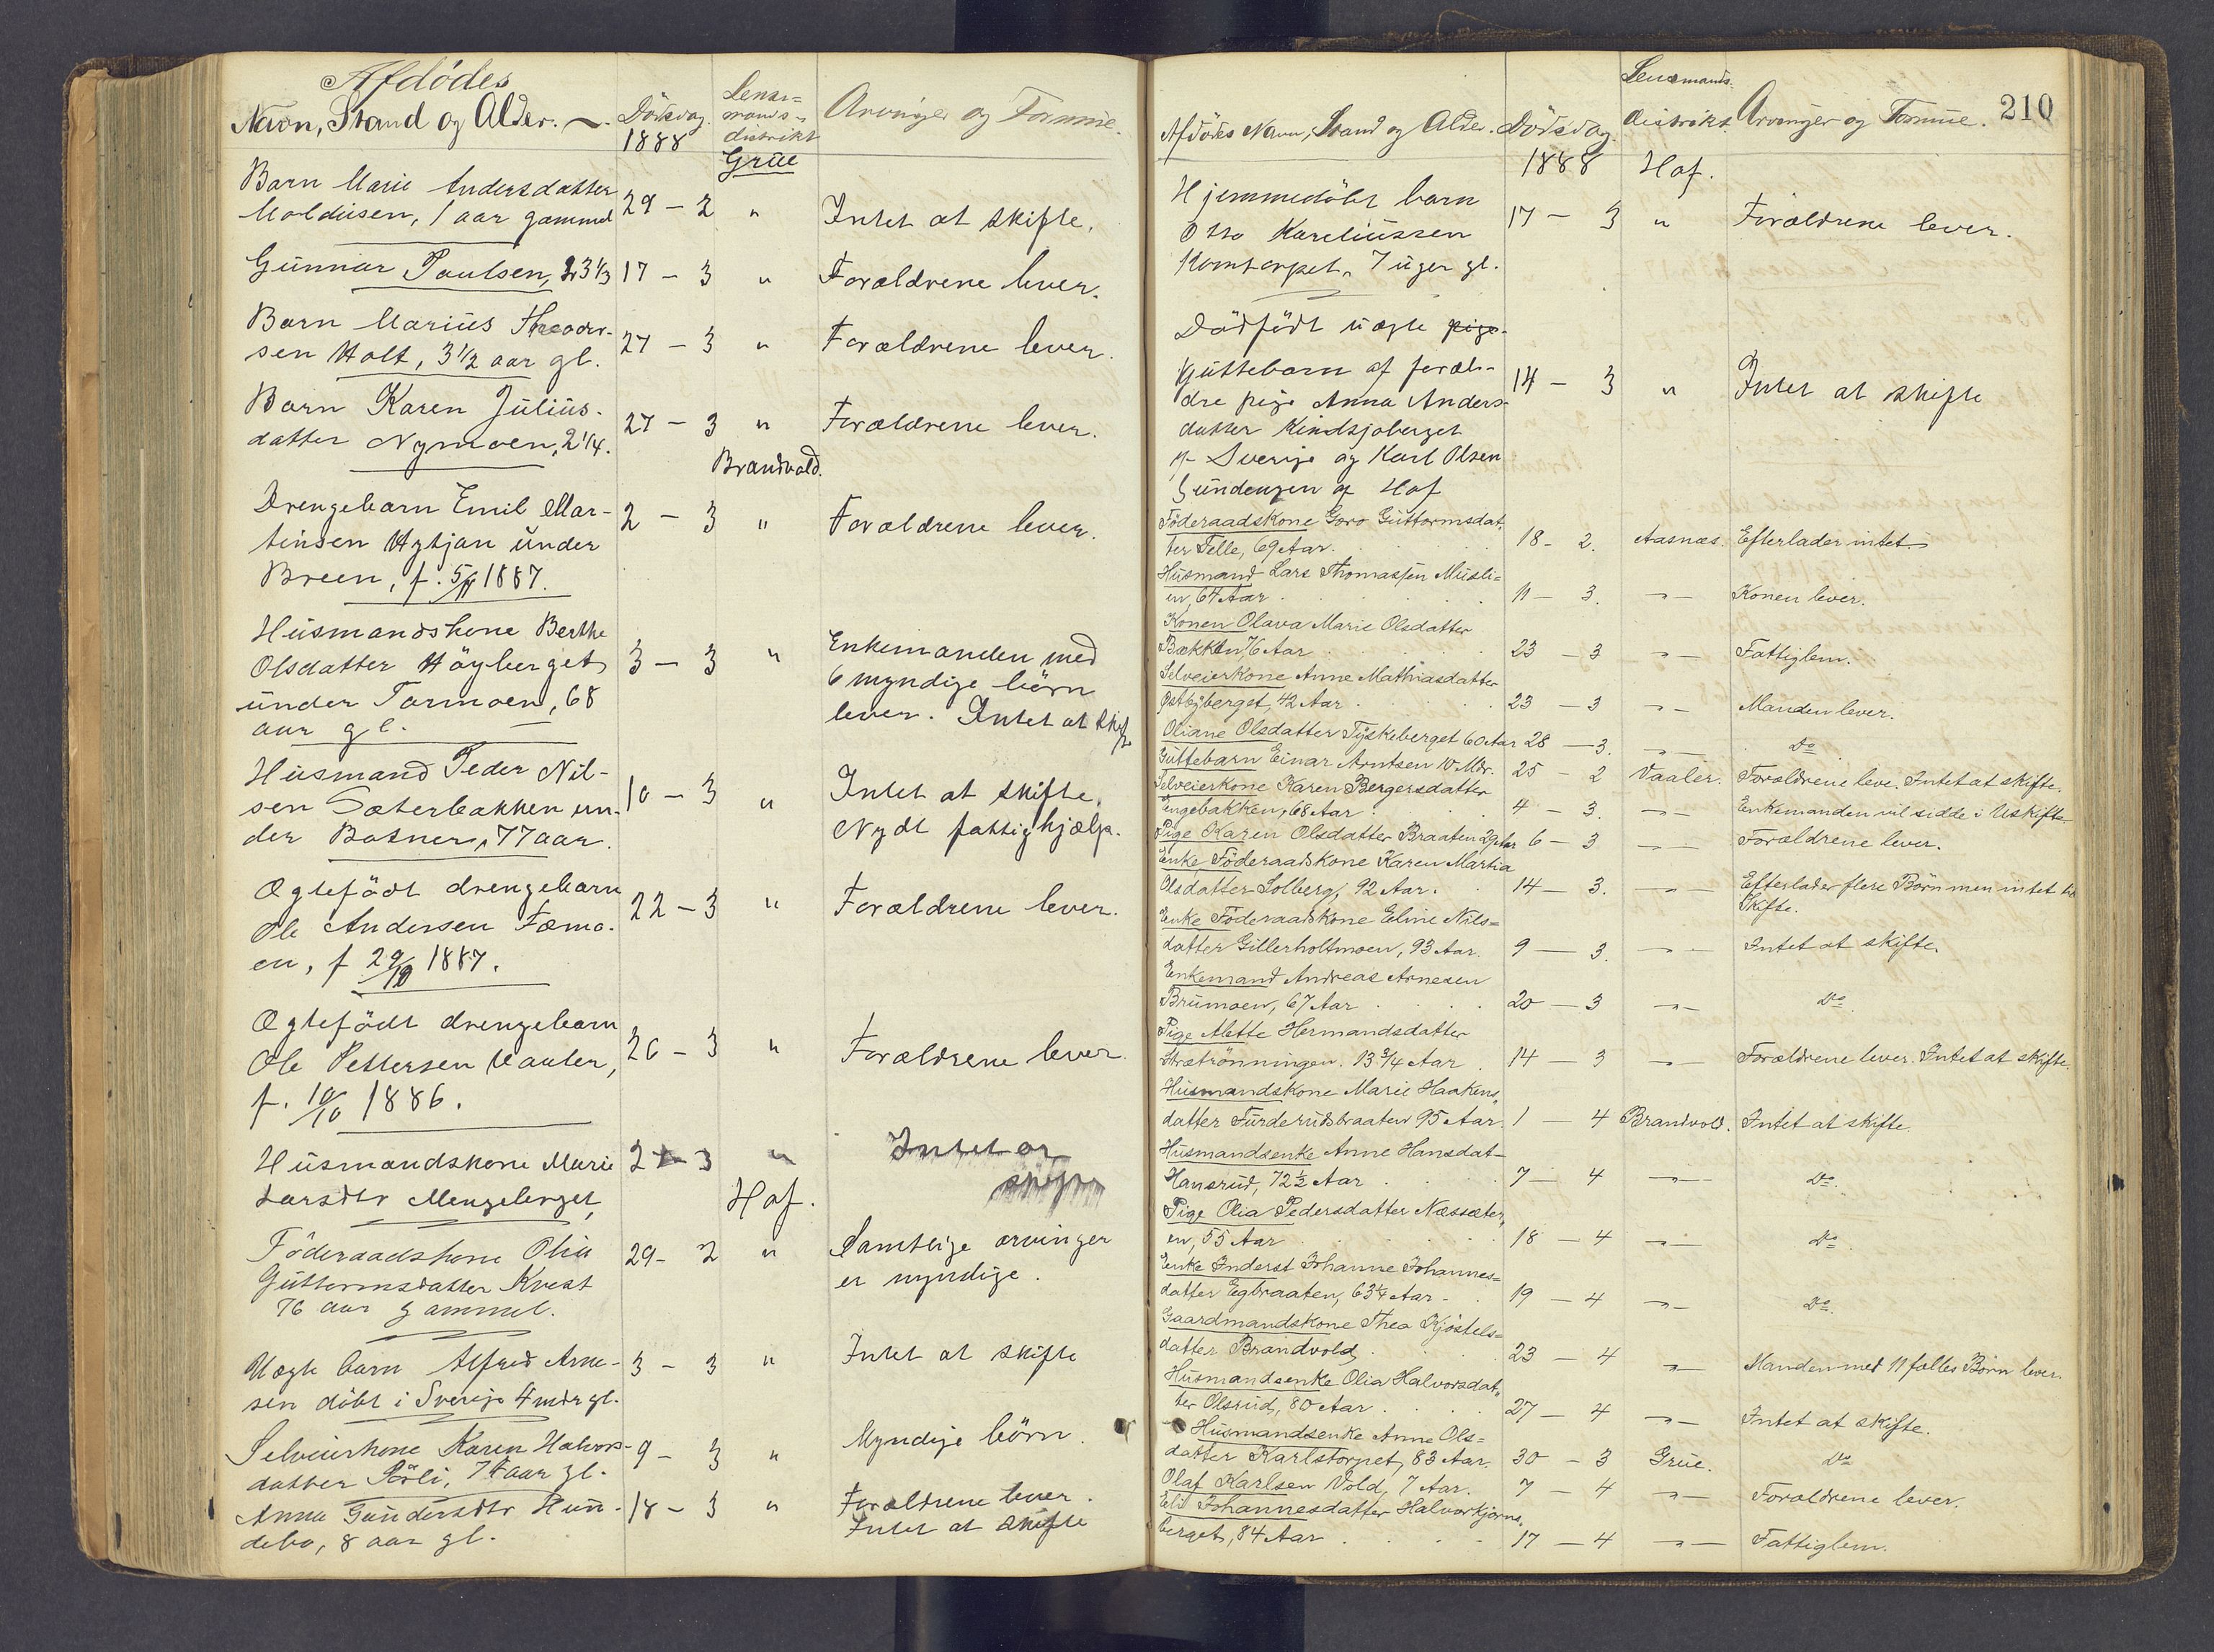 Afdødes
Navn, Stand og Alder. Dødsdag. Lens=
mands= Arvinger og Formue.
1888 distrikt
Grue
Barn Marie Andersdatter
Moldusen, 1 aar gammel 29 - 2 " Intet at skifte.
Gunnar Paulsen, 3 1/3 17 - 3 " Forældrene lever.
Barn Marius Theodor-
sen Holt, 3 1/2 aar gl. 27 - 3 " Forældrene lever.
Barn Karen Julius-
datter Nymoen, 2 1/4. 27 - 3 " Forældrene lever.
Brandvold.
Drengebarn Emil Mar- 2 - 3 " Forældrene lever.
tinsen Hytjan under
Breen, f. 5/11 1887.
Husmandskone Berthe
Olsdatter Høgberget 3 - 3 " Enkemanden med
under Tarmoen, 68 6 myndige børn
aar gl. lever. Intet at skifte
Husmand Peder Nil-
sen Sæterbakken un- 10 - 3 " Intet at skifte.
der Botner, 77 aar. Nydt fattighjælp.
Ægtefødt drengebarn
Ole Andersen Fæmo- 22 - 3 " Forældrene lever.
en, f 29/10 1887.
Ægtefødt drengebarn
Ole Pettersen Vaaler, 26 - 3 " Forældrene lever.
f. 10/10 1886.
Husmandskone Marie 2 - 3 " Intet at
Larsdtr Mengeberget, skifte
Hof.
Føderaadskone Olia 29 - 2 " Samtlige arvinger
Guttormsdatter Kvest er myndige.
76 aar gammel.
Uægte barn Alfred Arne- 3 - 3 " Intet at skifte
sen døbt i Sverige 4 mdr gl.
Selveierkone Karen Halvors- 9 - 3 " Myndige børn.
datter Pøsli, 74 aar gl.
Anna Gundersdtr Hun- 18 - 3 " Forældrene lever.
debo, 8 aar gl. Intet at skifte
210
Afdødes Navn, Stand og Alder. Dødsdag. Lensmands-
distrikt. Arvinger og Formue.
1888 Hof.
Hjemmedøbt barn
Otto Kareliussen 17 - 3 " Forældrene lever.
Komtorpet, 7 uger gl.
Dødfødt uægte pige-
guttebarn af foræl- 14 - 3 " Intet at skifte
dre pige Anna Anders-
datter Kindsjøberget
af Sverige og Karl Olsen
Gundengen af Hof
Føderaadskone Goro Guttormsdat-
ter Felle, 69 Aar. 18 - 2. Aasnæs. Efterlader intet.
Husmand Lars Thomassen Musli=
en, 64 Aar 11 - 3. -"- Konen lever.
Konen Olava Marie Olsdatter
Bækken 76 Aar 23 - 3 -"- Fattiglem.
Selveierkone Anne Mathiasdatter
Østbyberget, 42 Aar. 23 - 3 -"- Manden lever.
Oliane Olsdatter Tyskeberget 60 Aar 28 - 3. -"- Do
Guttebarn Einar Arntsen 10 Mdr. 25 - 2 Vaaler. Forældrene leve. Intet at skifte.
Selveierkone Karen Bergersdatter
Engebakken, 68 Aar. 4 - 3. -"- Enkemanden vil sidde i Uskifte.
Pige Karen Olsdatter Braaten 29 Aar 6 - 3 -"- Forældrene lever.
Enke Føderaadskone Karen Martia
Olsdatter Solberg, 92 Aar. 14 - 3. -"- Efterlader flere Børn men intet til
Skifte.
Enke Føderaadskone Eline Nils=
datter Gillerholtmoen, 93 Aar. 9 - 3. -"- Intet at skifte.
Enkemand Andreas Arnesen
Brumoen, 67 Aar 20 - 3 -"- Do
Pige Mette Hermandsdatter
Strætrønningen. 13 3/4 Aar 14 - 3 -"- Forældrene lever. Intet at skifte.
Husmandskone Marie Haakens-
datter Furderudsbraaten 95 Aar. 1 - 4 Brandvold. Intet at skifte.
Husmandsenke Anne Hansdat-
Hansrud, 72 1/2 Aar 7 - 4 -"- Do.
Pige Olia Pedersdatter Næssæter-
en, 55 Aar 18 - 4 -"- Do
Enke Inderst Johanne Johannes=
datter Egbraaten, 63 1/4 Aar. 19 - 4 -"- Do.
Gaardmandskone Thea Kjøstels=
datter Brandvold, 23 - 4 -"- Manden med 11 fælles Børn lever.
Husmandsenke Olia Halvorsdat-
ter Olsrud, 80 Aar. 27 - 4 -"- Intet at skifte.
Husmandsenke Anne Ols=
datter Karlstorpet, 83 Aar. 30 - 3 Grue. Do
Olaf Karlsen Vold, 7 Aar. 7 - 4 -"- Forældrene lever.
Eli Johannesdatter Halvorkjerns-
berget, 84 Aar. 17 - 4 -"- Fattiglem.